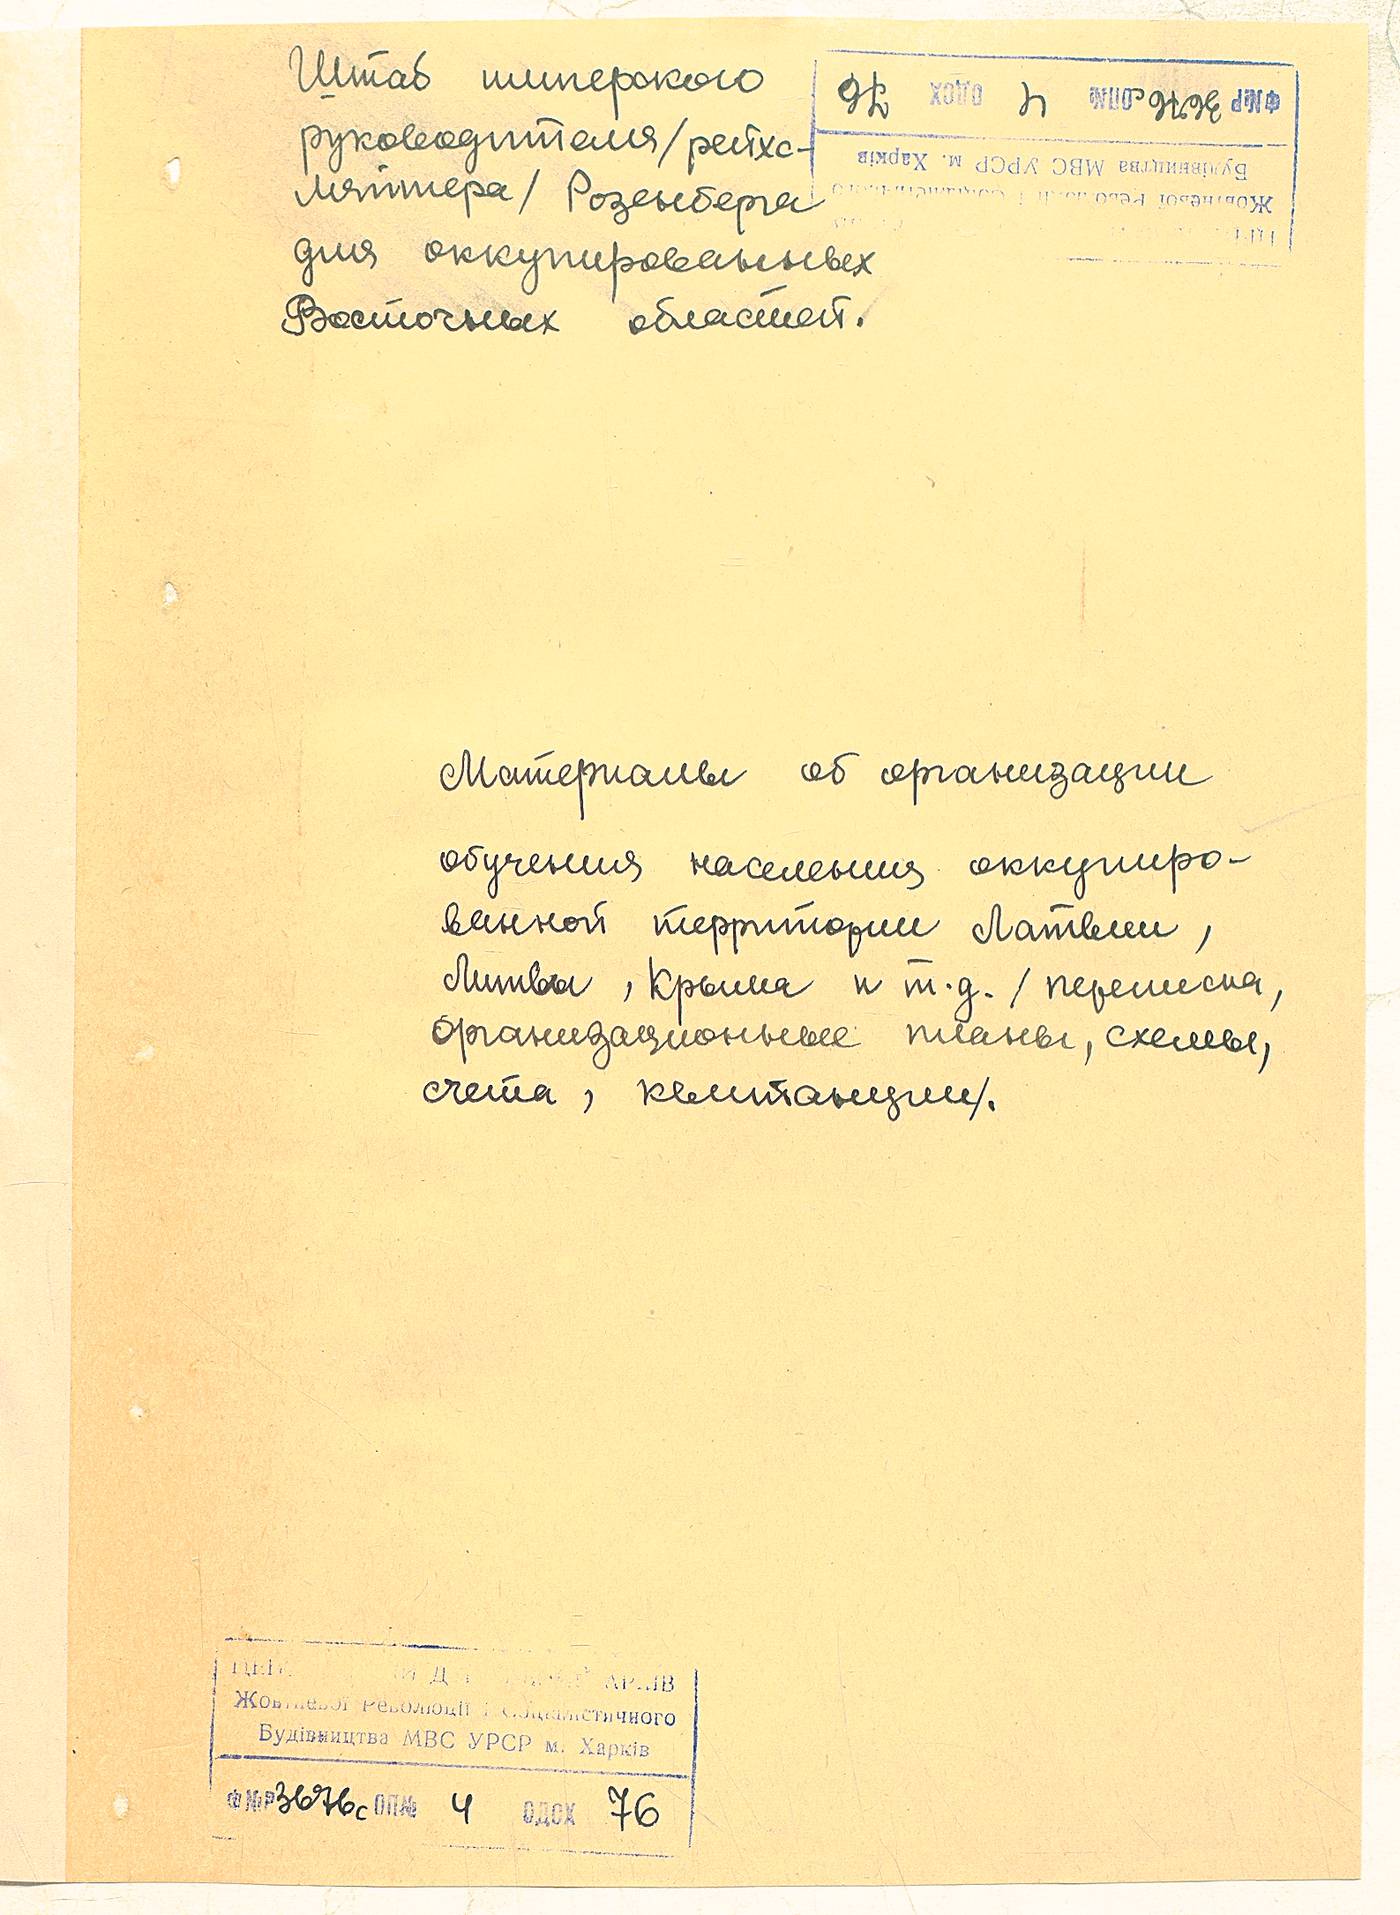 Штаб имперского
руководителя/рейхс-
ляйтера/ Розенберга
для оккупированных
Восточных областей.
Ф №Р 3676с ОП№ 4 ОДСХ 76
Будівництва МВС УРСР м. Харків
Жовтневої Революції і Соціалістичного
Материалы об организации
обучения населения оккупиро-
ванной территории Латвии,
Литвы, Крыма и т.д. /переписка,
организационные планы, схемы,
счета, квитанции/.
АРХІВ
Жовтневої Революції і Соціалістичного
Будівництва МВС УРСР м. Харків
Ф №Р 3676с ОП№ 4 ОДСХ 76